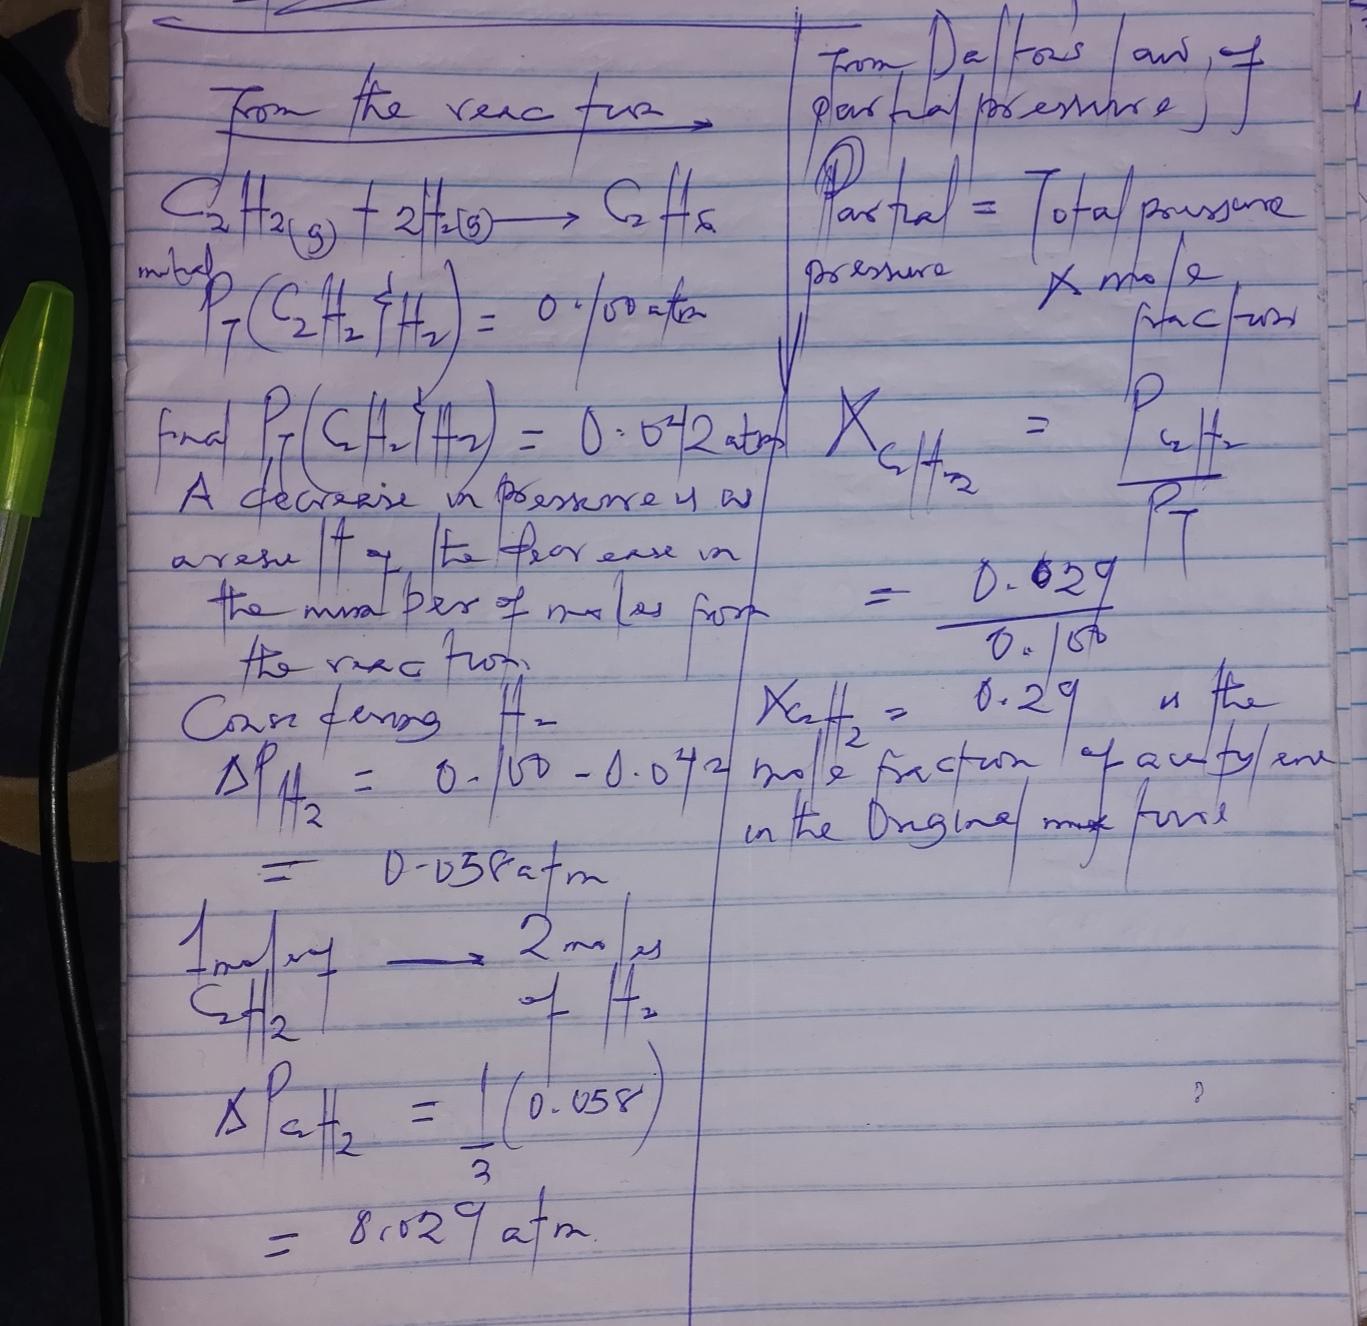 From the reaction
C2H2(g) + 2H2(g) → C2H6
initial
PT(C2H2 & H2) = 0.100 atm
final PT(C2H2 & H2) = 0.042 atm
A decrease in pressure is as
a result of the decrease in
the number of moles from
the reaction.
Considering H2
ΔPH2 = 0.100 - 0.042
= 0.058 atm
1 mole of → 2 moles
C2H2 of H2
ΔPC2H2 = 1/3 (0.058)
= 0.029 atm.
From Daltons law of
partial pressure,
Partial = Total pressure
pressure x mole
fraction
XC2H2 = PC2H2 / PT
= 0.029 / 0.100
XC2H2 = 0.29 is the
mole fraction of acetylene
in the Original mixture